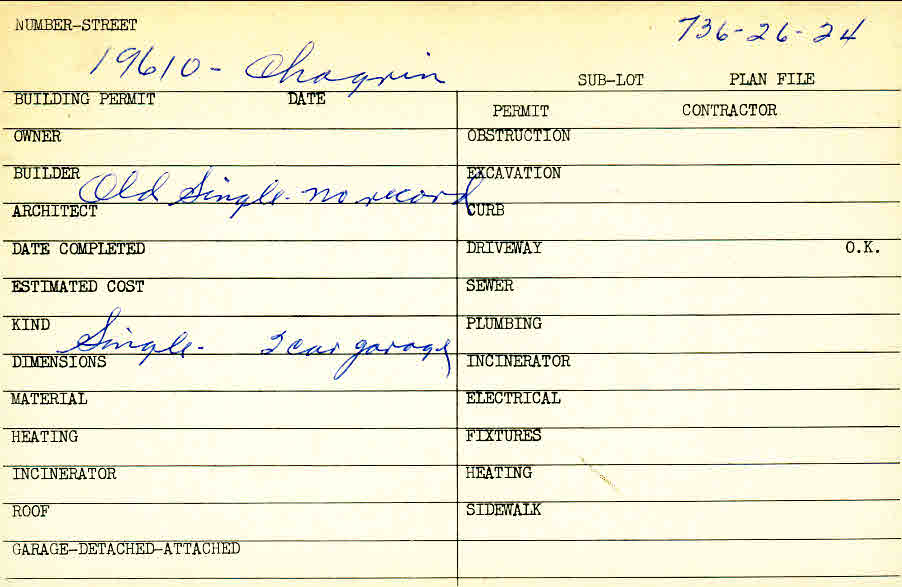 NUMBER-STREET
736-26-24
19610 - Chagrin
SUB-LOT PLAN FILE
BUILDING PERMIT DATE
PERMIT CONTRACTOR
OWNER
OBSTRUCTION
BUILDER
EXCAVATION
Old Single - no record
ARCHITECT
CURB
DATE COMPLETED
DRIVEWAY O.K.
ESTIMATED COST
SEWER
KIND
PLUMBING
Single - 2 car garage
DIMENSIONS
INCINERATOR
MATERIAL
ELECTRICAL
HEATING
FIXTURES
INCINERATOR
HEATING
ROOF
SIDEWALK
GARAGE-DETACHED-ATTACHED